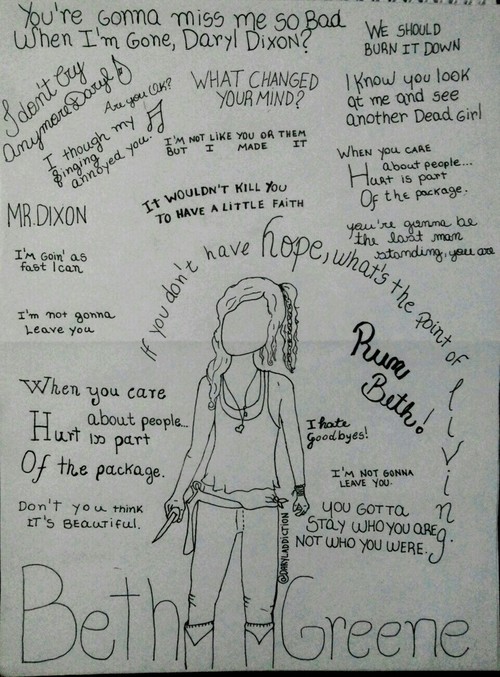 You're Gonna miss me so Bad
When I'm Gone, Daryl Dixon?
WE SHOULD
BURN IT DOWN
I don't Cry
Anymore Daryl
Are you OK?
WHAT CHANGED
YOUR MIND?
I Know you look
at me and see
another Dead Girl
I though my
singing
annoyed you.
I'M NOT LIKE YOU OR THEM
BUT I MADE IT
WHEN YOU CARE
about people...
Hurt is part
Of the package.
IT WOULDN'T KILL YOU
TO HAVE A LITTLE FAITH
MR. DIXON
you're gonna be
the last man
standing, you are
I'm Goin' as
fast I can
If you don't have hope, what's the point of living.
I'm not gonna
Leave you
Run
Beth!
When you care
about people...
Hurt is part
Of the package.
I hate
Goodbyes!
I'M NOT GONNA
LEAVE YOU.
Don't you think
IT'S BEAUTIFUL.
YOU GOTTA
STAY WHO YOU ARE,
NOT WHO YOU WERE.
@DARYLADDICTION
Beth Greene